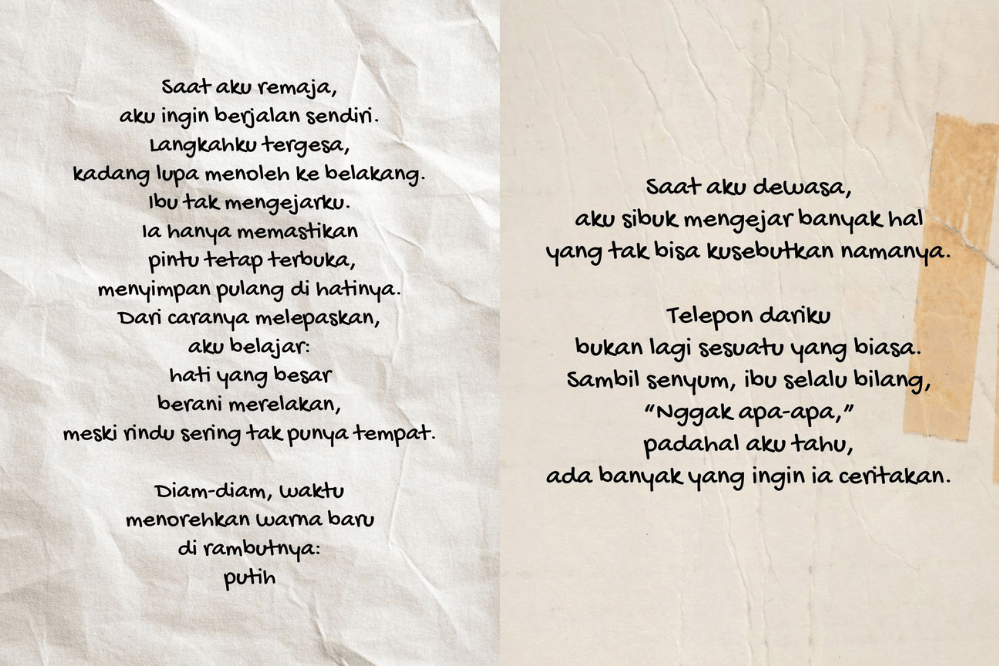 Saat aku remaja,
aku ingin berjalan sendiri.
Langkahku tergesa,
kadang lupa menoleh ke belakang.
Ibu tak mengejarku.
Ia hanya memastikan
pintu tetap terbuka,
menyimpan pulang di hatinya.
Dari caranya melepaskan,
aku belajar:
hati yang besar
berani merelakan,
meski rindu sering tak punya tempat.
Diam-diam, waktu
menorehkan warna baru
di rambutnya:
putih
Saat aku dewasa,
aku sibuk mengejar banyak hal
yang tak bisa kusebutkan namanya.
Telepon dariku
bukan lagi sesuatu yang biasa.
Sambil senyum, ibu selalu bilang,
“Nggak apa-apa,”
padahal aku tahu,
ada banyak yang ingin ia ceritakan.